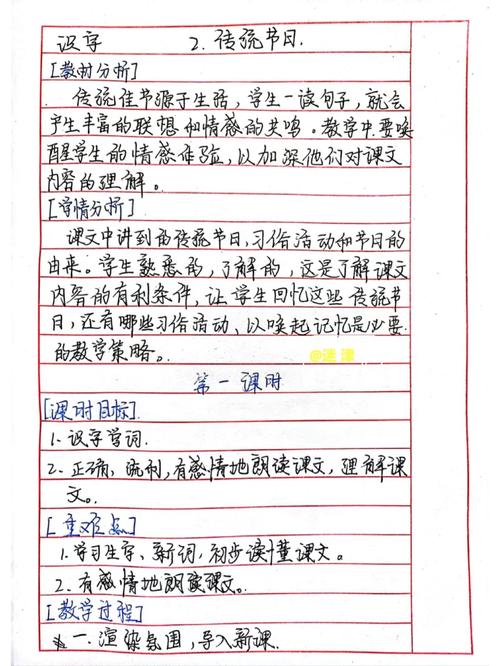 识字 2.传统节日.
[教材分析]
传统佳节源于生活，学生一读句子，就会
产生丰富的联想和情感的共鸣。教学中要唤
醒学生的情感体验，以加深他们对课文
内容的理解。
[学情分析]
课文中讲到的传统节日，习俗活动和节日的
由来。学生熟悉的，了解的，这是了解课文
内容的有利条件，让学生回忆这些传统节
日，还有哪些习俗活动，以唤起记忆是必要
的教学策略。
第一课时
[课时目标].
1.识字学词.
2.正确，流利，有感情地朗读课文，理解课
文。
[重难点]
1.学习生字、新词，初步读懂课文。
2.有感情地朗读课文。
[教学过程]
一.渲染氛围，导入新课.